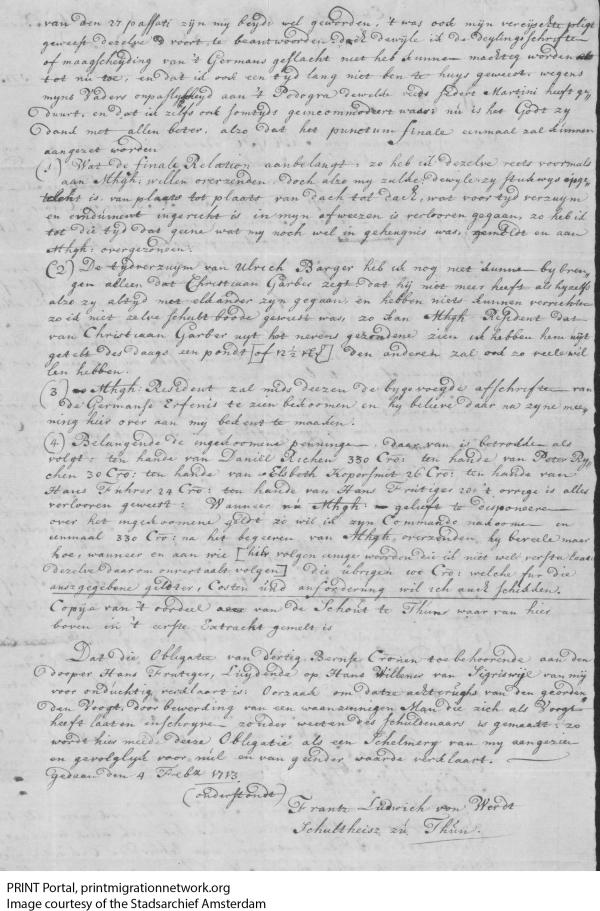 van den 27 passati zijn my beyde wel geworden, 't was ook mijn vereyschte pligt
geweest dezelve voort te beantwoorden. dach dewyle ik de deylingsschriften
of maagscheyding van 't Germans geslacht niet heb kunnen machtig worden
tot nu toe; en dat ik ook een tyd lang niet ben te huys geweest, wegens
myns Vaders onpaslykheyd aan 't Podogra dewelke reets sedert Martini heeft ge
duurt, en dat ik zelfs ook somtyds geincommodeert was: nu is het Godt zy
dank met allen beter, alzo dat het punctum finale eenmaal zal kunnen
aangezet worden.
(1) Wat de finale Relation aanbelangt; zo heb ik dezelve reets voormals
aan Mhgh: willen overzenden, doch alzo my zulke, dewyle zy stukwys
is, van plaats tot plaats van dach tot dach, wat voor tyd verzuym
en ingericht is in myn afweezen is verlooren gegaan, zo heb ik
tot die tyd dat geene wat my noch wel in gehengnis was, gemeldt en aan
Mhgh: overgezonden.
(2) De tydverzuym van Ulrich Barger heb ik nog niet kunnen by bren
gen alleen dat Christiaan Garber zegt dat hij niet meer heeft als hyzelfs
alzo zy altyd met elkander zyn gegaan, en hebben niets kunnen verrichten
zo ik niet zelve schultboode geweest was, zo kan Mhgh Resident dat
van Christiaan Garber uyt het nevens gezondene zien ik hebben hem niet
getelt des daags een pondt [of 12½ st] den anderen zal ook zo veel wil
len hebben.
(3) Mhgh: Resident zal mids deezen de bygevoegde afschriften van
de Germanse Erfenis te zien bekoomen en hy believe daar na zyne mee
ning hier over aan my bekent te maaken.
(4) Belangende de ingekoomene penningen, daar van is betrokken als
volgt: ten hande van Daniel Richen 330 Cro: ten hande van Peter Ry
chen 30 Cro: ten hande van Elsbeth Kopersmit 26 Cro: ten hande van
Hans Fuhrer 24 Cro: ten hande van Hans Frutiger 20: 't overige is alles
verlooren geweest: Wanneer Mhgh: gelieft te disponeeren
over het ingekoomene geldt zo wil ik zyn Commando nakoomen en
eenmaal 330 Cro: na het begeeren van Mhgh, overzenden, hy beveele maar
hoe, wanneer en aan wie [hier volgen eenige woorden die ik niet wel versta laate
dezelve daarom onvertaalt volgen] die übrigen 100 Cro: welche fur die
auszgegebene gelter, Costen und anforderung wil ich auch schicken.
Copija van 't oordeel van de Schout te Thun waar van hier
boven in 't eerste Extract gemelt is
Dat die Obligatie van dertig Bernse Croonen toebehoorende aan den
dooper Hans Frutiger, Luydende op Hans Willener van Sigriswijl van my
voor onduchtig verklaart is: Oorzaak om datze achterrughs van den geordn
den Voogt, door bewerding van een waanzinnigen Man die zich als Voogt
heeft laaten inschryven zonder weeten des schuldenaars is gemaakt: zo
wordt hier meede deeze Obligatie als een Schelmery van my aangezien
en gevolglyk voor nul en van geender waarde verklaart.
Gedaan den 4 Febr. 1713.
(onderstondt)
Frantz Ludwich von Werdt
Schultheisz zu Thun.
PRINT Portal, printmigrationnetwork.org
Image courtesy of the Stadsarchief Amsterdam